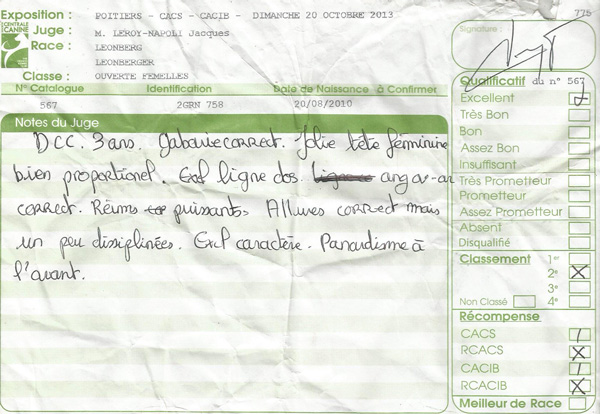 775
Exposition : POITIERS - CACS - CACIB - DIMANCHE 20 OCTOBRE 2013
CENTRALE CANINE
Juge : M. LEROY-NAPOLI Jacques
Race : LEONBERG
LEONBERGER
Classe : OUVERTE FEMELLES
Signature :
N° Catalogue Identification Date de Naissance à Confirmer
567 2GRN 758 20/08/2010
Notes du Juge
DCC. 3 ans. Gabarie correct. Jolie tête féminine
bien proportionel. Exl ligne dos. angar-ar
correct. Reims puissants. Allures correct mais
un peu dissiplinées. Exl caractère. Panardisme à
l'avant.
Qualificatif du n° 567
Excellent
Très Bon
Bon
Assez Bon
Insuffisant
Très Prometteur
Prometteur
Assez Prometteur
Absent
Disqualifié
Classement 1er
2e X
3e
Non Classé 4e
Récompense
CACS /
RCACS X
CACIB /
RCACIB X
Meilleur de Race